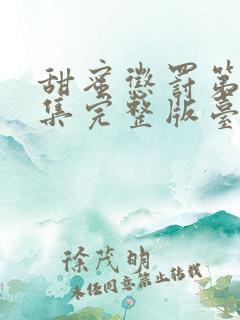 甜蜜懲罰第
集完整版臺
徐茂明
未经同意禁止转载